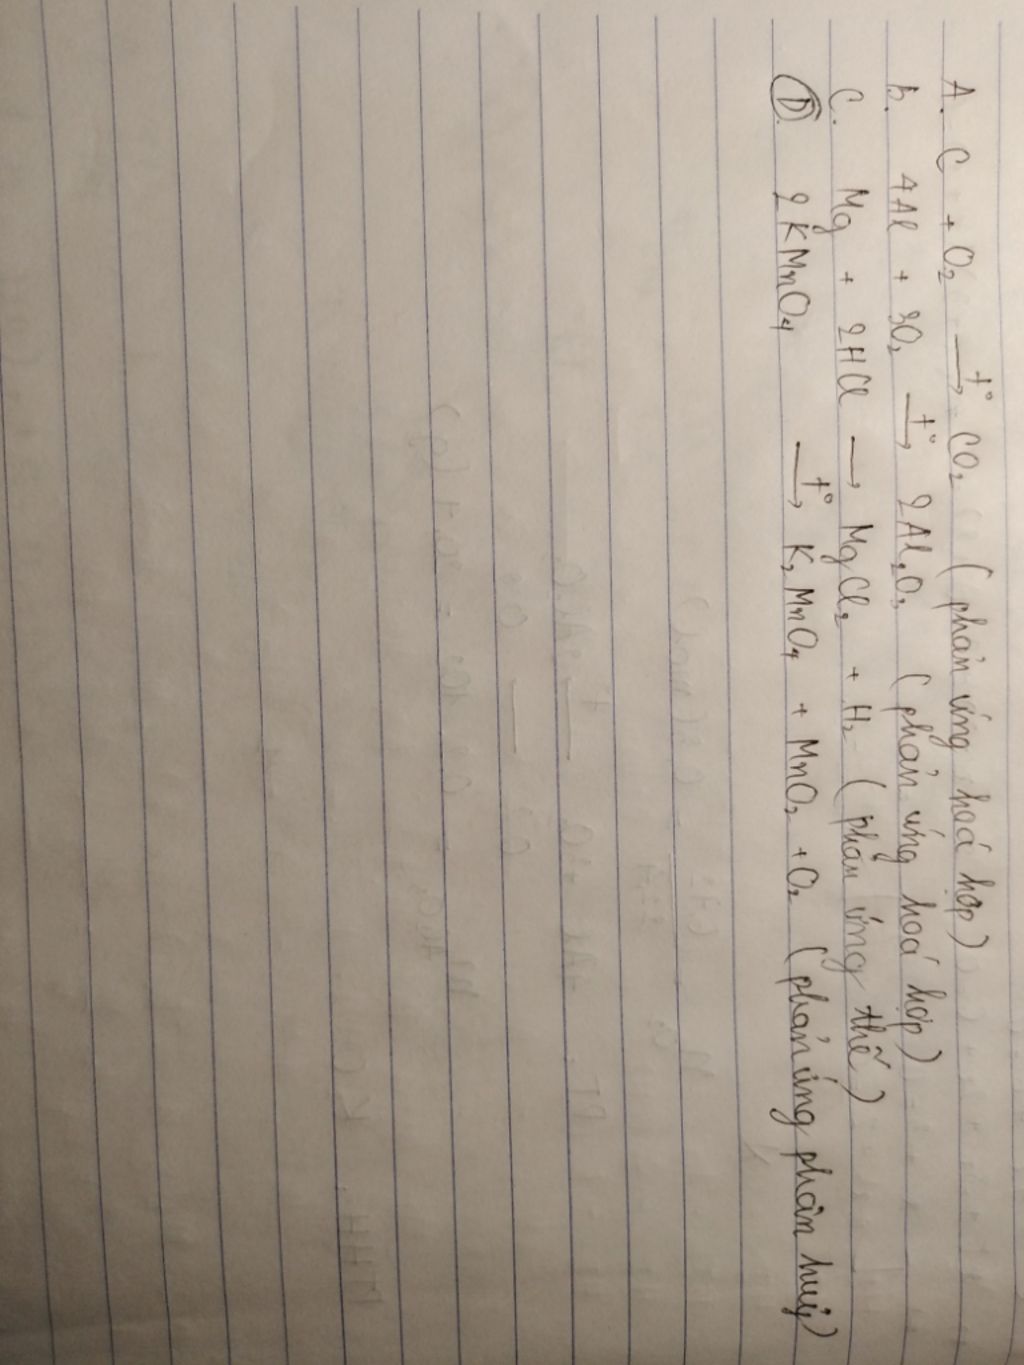 A. C + O₂ —t°→ CO₂ (phản ứng hoá hợp)
B. 4Al + 3O₂ —t°→ 2Al₂O₃ (phản ứng hoá hợp)
C. Mg + 2HCl → MgCl₂ + H₂ (phản ứng thế)
D. 2KMnO₄ —t°→ K₂MnO₄ + MnO₂ + O₂ (phản ứng phân huỷ)